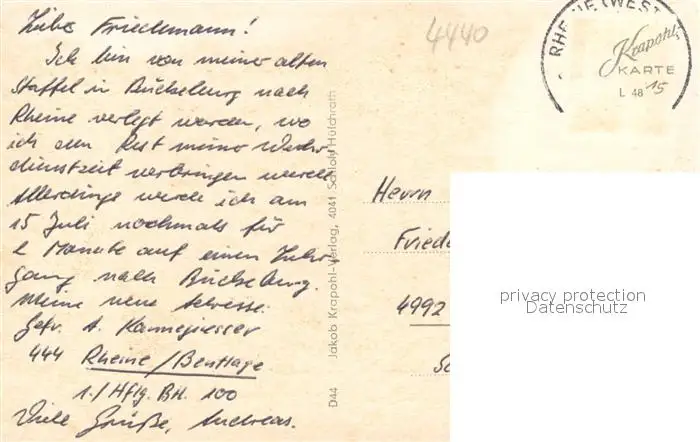 Lieber Friedemann!
Ich bin von meiner alten
Staffel in Bückeburg nach
Rheine verlegt worden, wo
ich den Rest meiner Wehr-
dienstzeit verbringen werde.
Allerdings werde ich am
15 Juli nochmals für
2 Monate auf einen Lehr-
gang nach Bückeburg.
Meine neue Adresse:
Gefr. A. Kannegiesser
444 Rheine/Bentlage
1./Hflg. BH. 100
Viele Grüße, Andreas.
4440
D44 Jakob Krapohl-Verlag, 4041 Schloß Hülchrath
RHEINE (WEST
Krapohl-
KARTE
L 48 15
Herrn
Friede
4992
privacy protection
Datenschutz